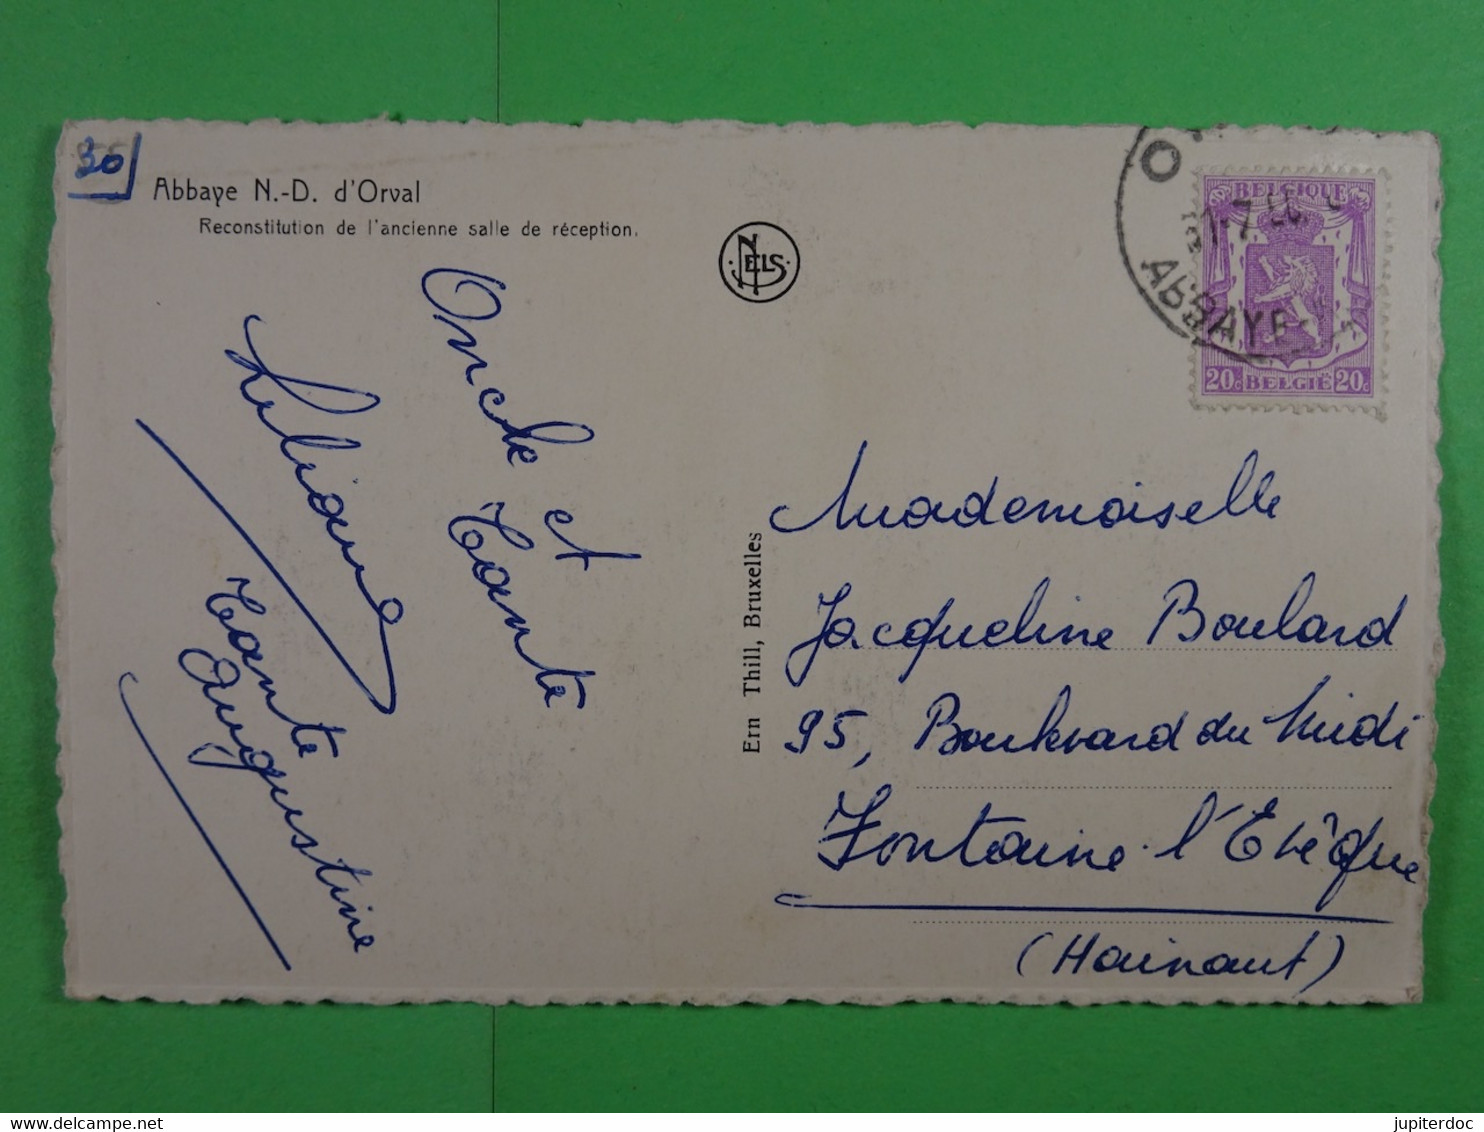 30
Abbaye N.-D. d'Orval
Reconstitution de l'ancienne salle de réception.
NELS
Oncle et
Tante
Liliane
Tante
Augustine
Ern Thill, Bruxelles
BELGIQUE
20c BELGIË 20c
ABBAYE
Mademoiselle
Jacqueline Boulard
95, Boulevard du Midi
Fontaine-l'Evêque
(Hainaut)
delcampe.net
jupiterdoc